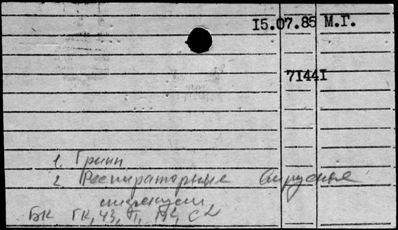 15.07.85 М.Г.
71441
1. Грипп
2. Респираторные вирусные
инфекции
БК ГК, ЧЗ, П,